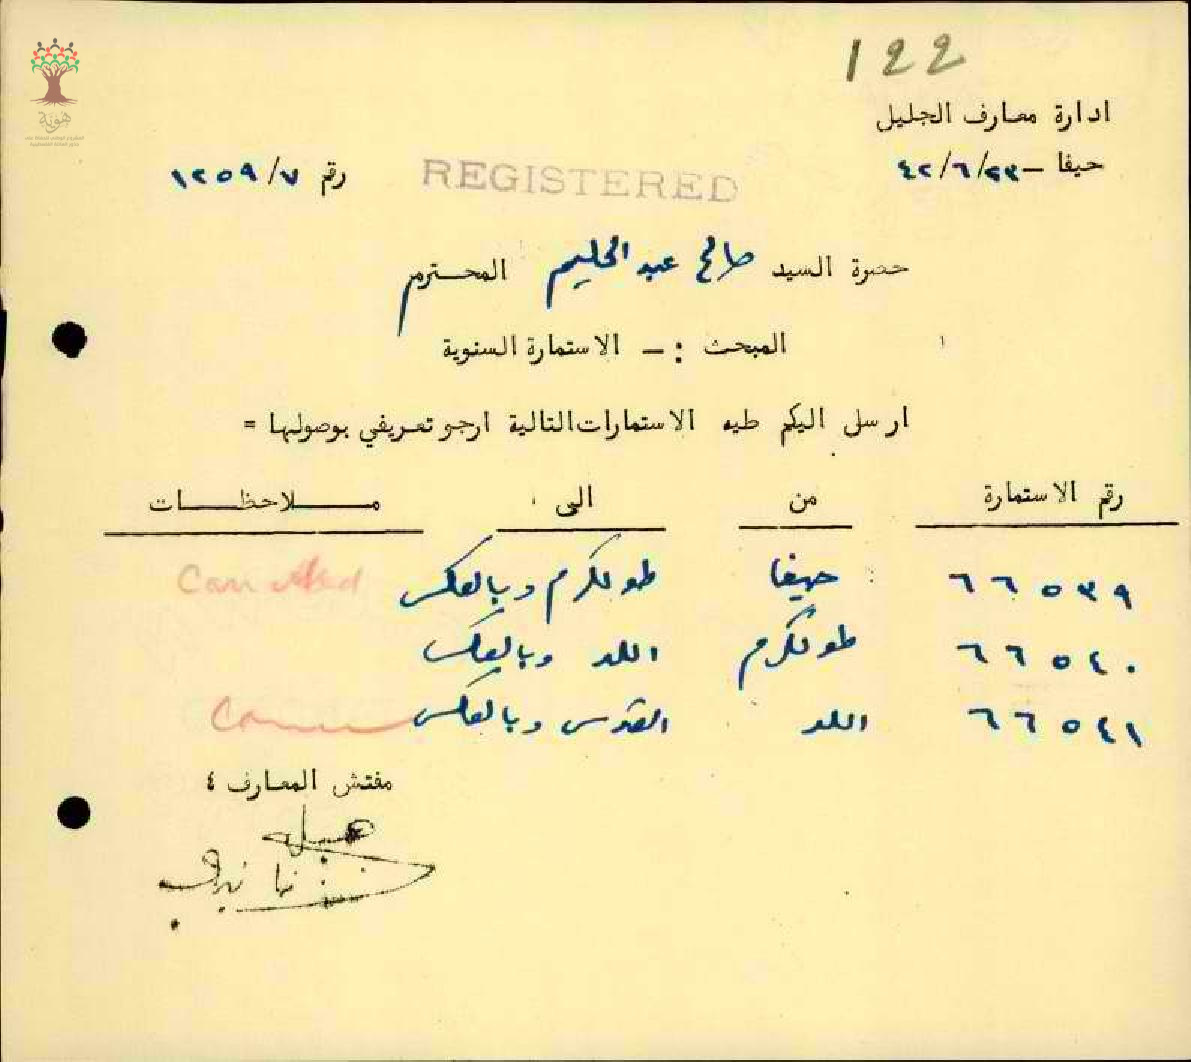 122
ادارة معارف الجليل
حيفا – ٤٢/٦/٢٣
رقم ١٢٥٩/٧
REGISTERED
هوية
حضرة السيد صالح عبد الحليم المحترم
المبحث :– الاستمارة السنوية
ارسل اليكم طيه الاستمارات التالية ارجو تعريفي بوصولها =
رقم الاستمارة من الى ملاحظات
٦٦٥٣٩ حيفا طولكرم وبالعكس Cancelled
٦٦٥٤٠ طولكرم اللد وبالعكس
٦٦٥٤١ اللد القدس وبالعكس
مفتش المعارف ٤